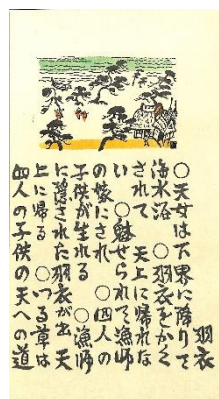 羽衣
○天女は下界に降りて
海水浴 ○羽衣をかく
されて 天上に帰れな
い ○魅せられて漁師
の嫁にされ ○四人の
子供が生れる ○漁師
に隠された羽衣が出 天
上に帰る ○つる草は
四人の子供の天への道